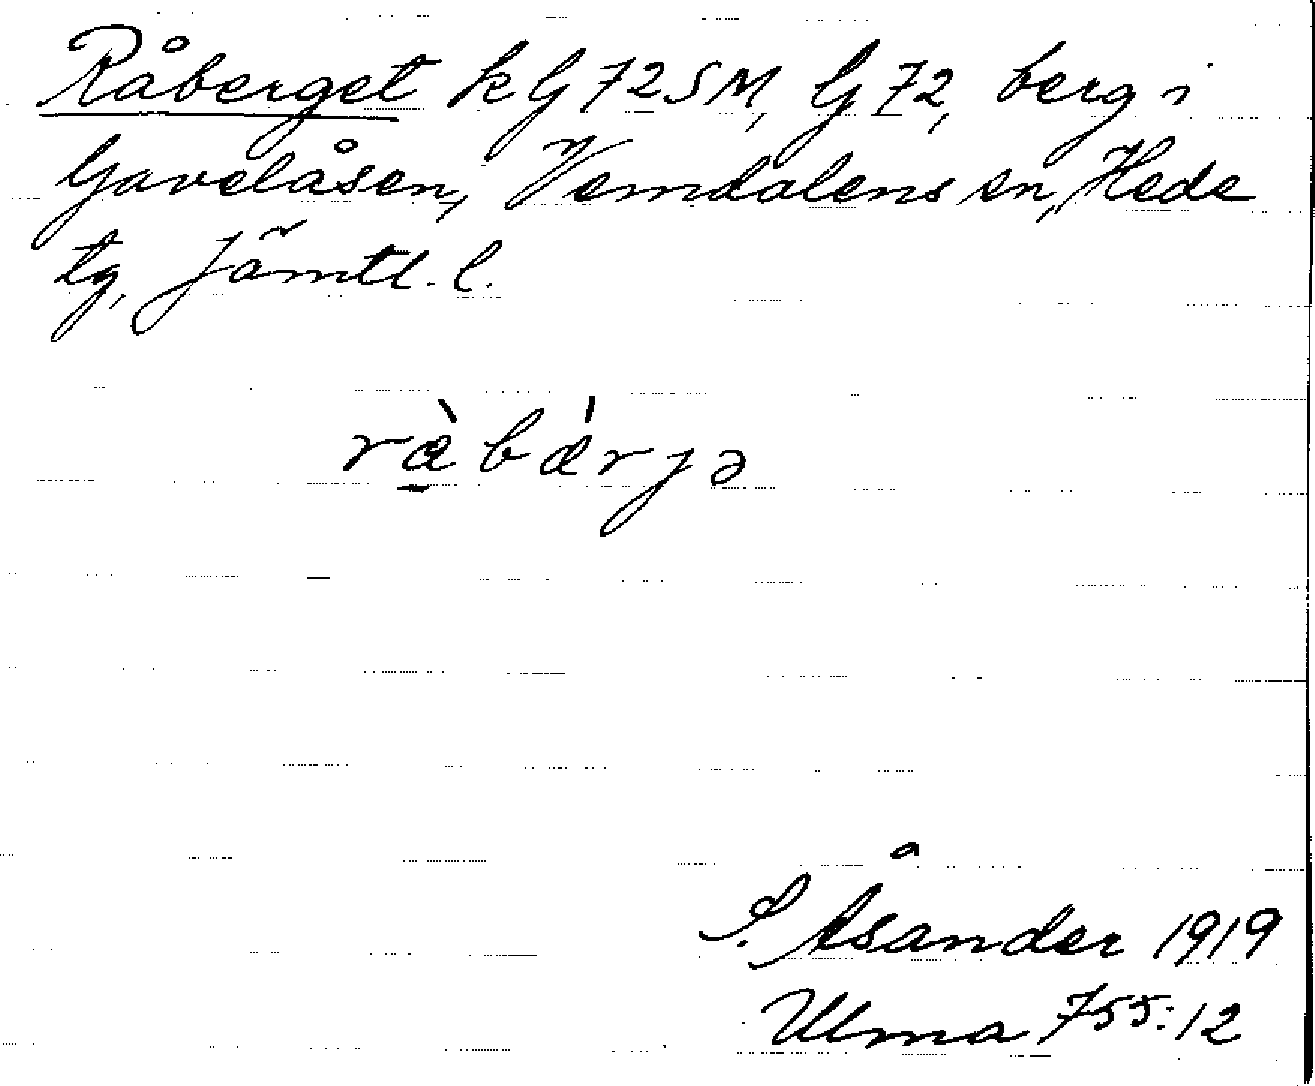 Råberget k G 72 SM, G 72, berg i
Gavelåsen, Vemdalens sn, Hede
tg, Jämtl. l.
ræ̀bǽrjə
S. Åsander 1919
Ulma 755:12